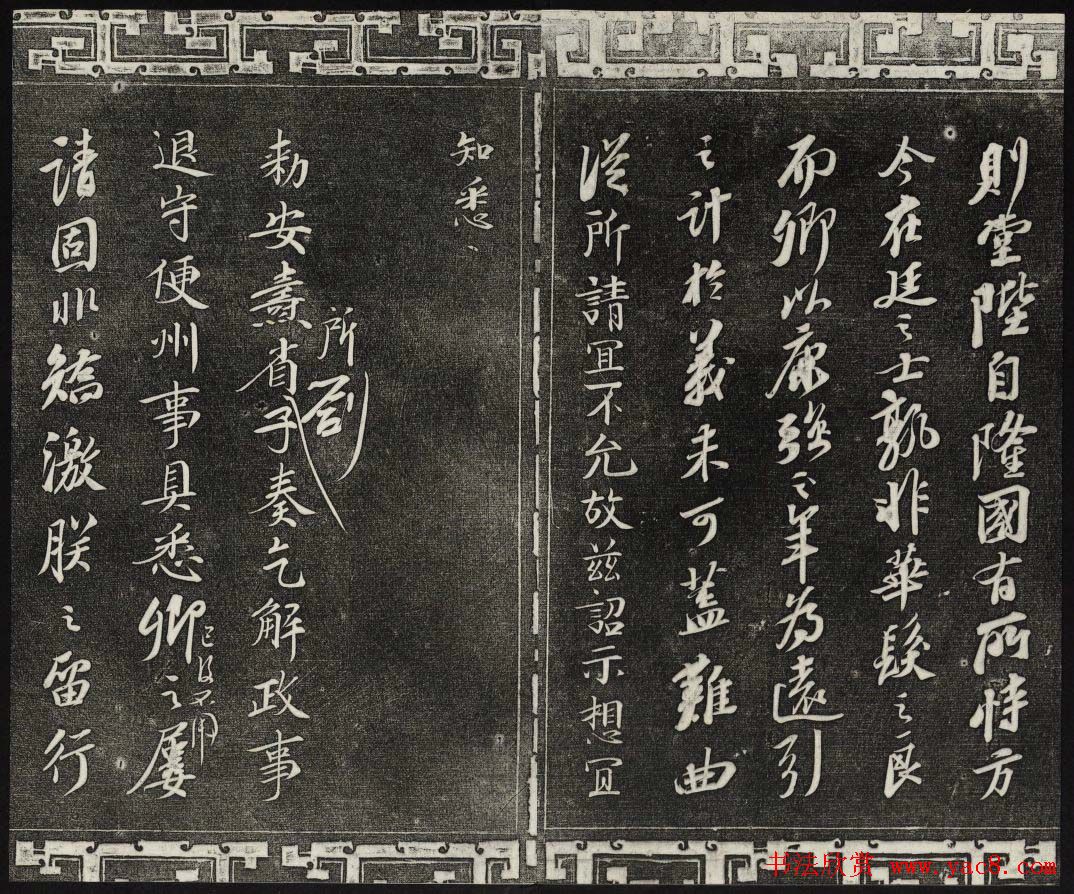 則堂陛自隆國有所恃方
今在廷之士孰非華髮之良
而卿以康強之年為遠引
之計於義未可蓋難曲
從所請宜不允故茲詔示想宜
知悉
所劄
勑安燾省子奏乞解政事
退守便州事具悉卿之屢
請固非矯激朕之留行
书法欣赏 www.yac8.com